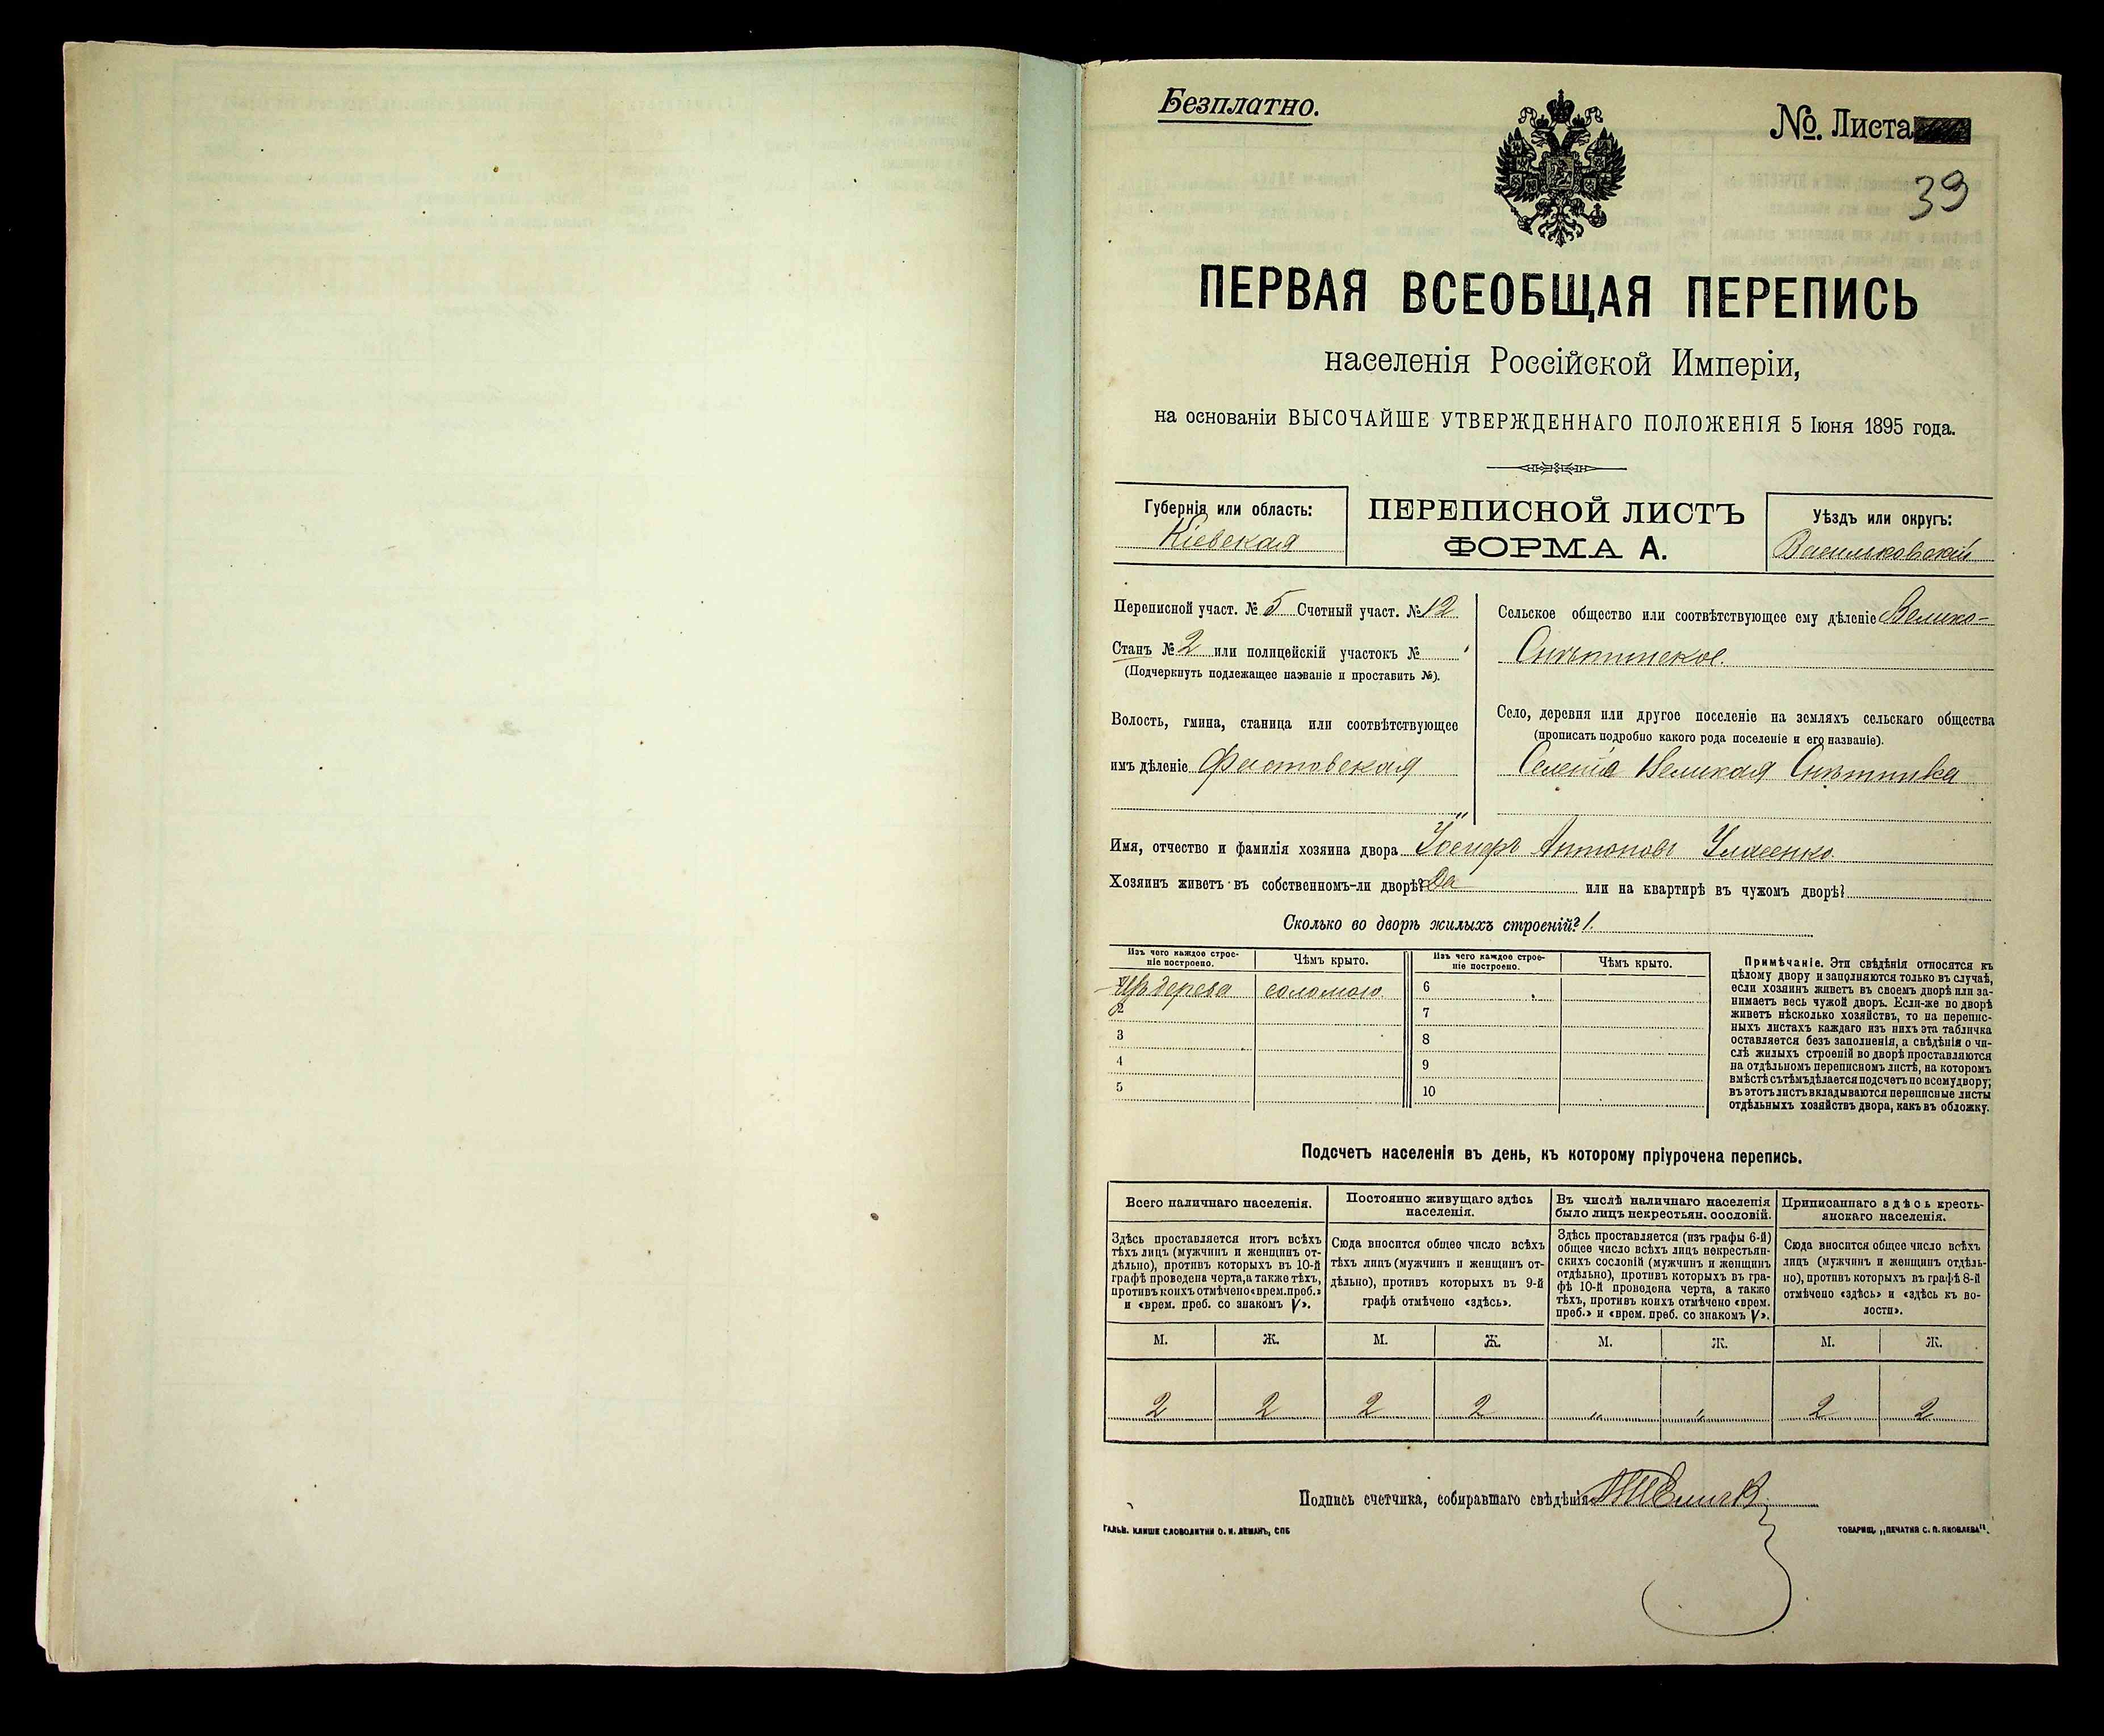 Безплатно.
№. Листа
39
ПЕРВАЯ ВСЕОБЩАЯ ПЕРЕПИСЬ
населенія Россійской Имперіи,
на основаніи ВЫСОЧАЙШЕ УТВЕРЖДЕННАГО ПОЛОЖЕНІЯ 5 Іюня 1895 года.
Губернія или область:
Кіевская
ПЕРЕПИСНОЙ ЛИСТЪ
ФОРМА А.
Уѣздъ или округъ:
Васильковскій
Переписной участ. № 5 Счетный участ. № 12
Станъ № 2 или полицейскій участокъ №
(Подчеркнуть подлежащее названіе и проставить №).
Волость, гмина, станица или соотвѣтствующее
имъ дѣленіе Фастовская
Сельское общество или соотвѣтствующее ему дѣленіе Велико-
Снѣтинское.
Село, деревня или другое поселеніе на земляхъ сельскаго общества
(прописать подробно какого рода поселеніе и его названіе).
Великая Снѣтинка
Имя, отчество и фамилія хозяина двора Іосифъ Антоновъ Уласенко
Хозяинъ живетъ въ собственномъ-ли дворѣ? Да или на квартирѣ въ чужомъ дворѣ?
Сколько во дворѣ жилыхъ строеній? 1.
Изъ чего каждое строе-
ніе построено.
Чѣмъ крыто.
Изъ чего каждое строе-
ніе построено.
Чѣмъ крыто.
Изъ дерева соломою. 6
2 7
3 8
4 9
5 10
Примѣчаніе. Эти свѣдѣнія относятся къ
цѣлому двору и заполняются только въ случаѣ,
если хозяинъ живетъ въ своемъ дворѣ или за-
нимаетъ весь чужой дворъ. Если-же во дворѣ
живетъ нѣсколько хозяйствъ, то на перепис-
ныхъ листахъ каждаго изъ нихъ эта табличка
оставляется безъ заполненія, а свѣдѣнія о чи-
слѣ жилыхъ строеній во дворѣ проставляются
на отдѣльномъ переписномъ листѣ, на которомъ
вмѣстѣ съ тѣмъ дѣлается подсчетъ по всему двору;
въ этотъ листъ вкладываются переписные листы
отдѣльныхъ хозяйствъ двора, какъ въ обложку.
Подсчетъ населенія въ день, къ которому пріурочена перепись.
Всего наличнаго населенія.
Здѣсь проставляется итогъ всѣхъ
тѣхъ лицъ (мужчинъ и женщинъ от-
дѣльно), противъ которыхъ въ 10-й
графѣ проведена черта, а также тѣхъ,
противъ коихъ отмѣчено «врем. преб.»
и «врем. преб. со знакомъ V».
Постоянно живущаго здѣсь
населенія.
Сюда вносится общее число всѣхъ
тѣхъ лицъ (мужчинъ и женщинъ от-
дѣльно), противъ которыхъ въ 9-й
графѣ отмѣчено «здѣсь».
Въ числѣ наличнаго населенія
было лицъ некрестьян. сословій.
Здѣсь проставляется (изъ графы 6-й)
общее число всѣхъ лицъ некрестьян-
скихъ сословій (мужчинъ и женщинъ
отдѣльно), противъ которыхъ въ гра-
фѣ 10-й проведена черта, а также
тѣхъ, противъ коихъ отмѣчено «врем.
преб.» и «врем. преб. со знакомъ V».
Приписаннаго здѣсь кресть-
янскаго населенія.
Сюда вносится общее число всѣхъ
лицъ (мужчинъ и женщинъ отдѣль-
но), противъ которыхъ въ графѣ 8-й
отмѣчено «здѣсь» и «здѣсь къ во-
лости».
М. Ж. М. Ж. М. Ж. М. Ж.
2 2 2 2 " " 2 2
Подпись счетчика, собиравшаго свѣдѣнія
ГАЛЬВ. КЛИШЕ СЛОВОЛИТНИ О. И. ЛЕМАНЪ, СПБ
ТОВАРИЩ. „ПЕЧАТНЯ С. П. ЯКОВЛЕВА".